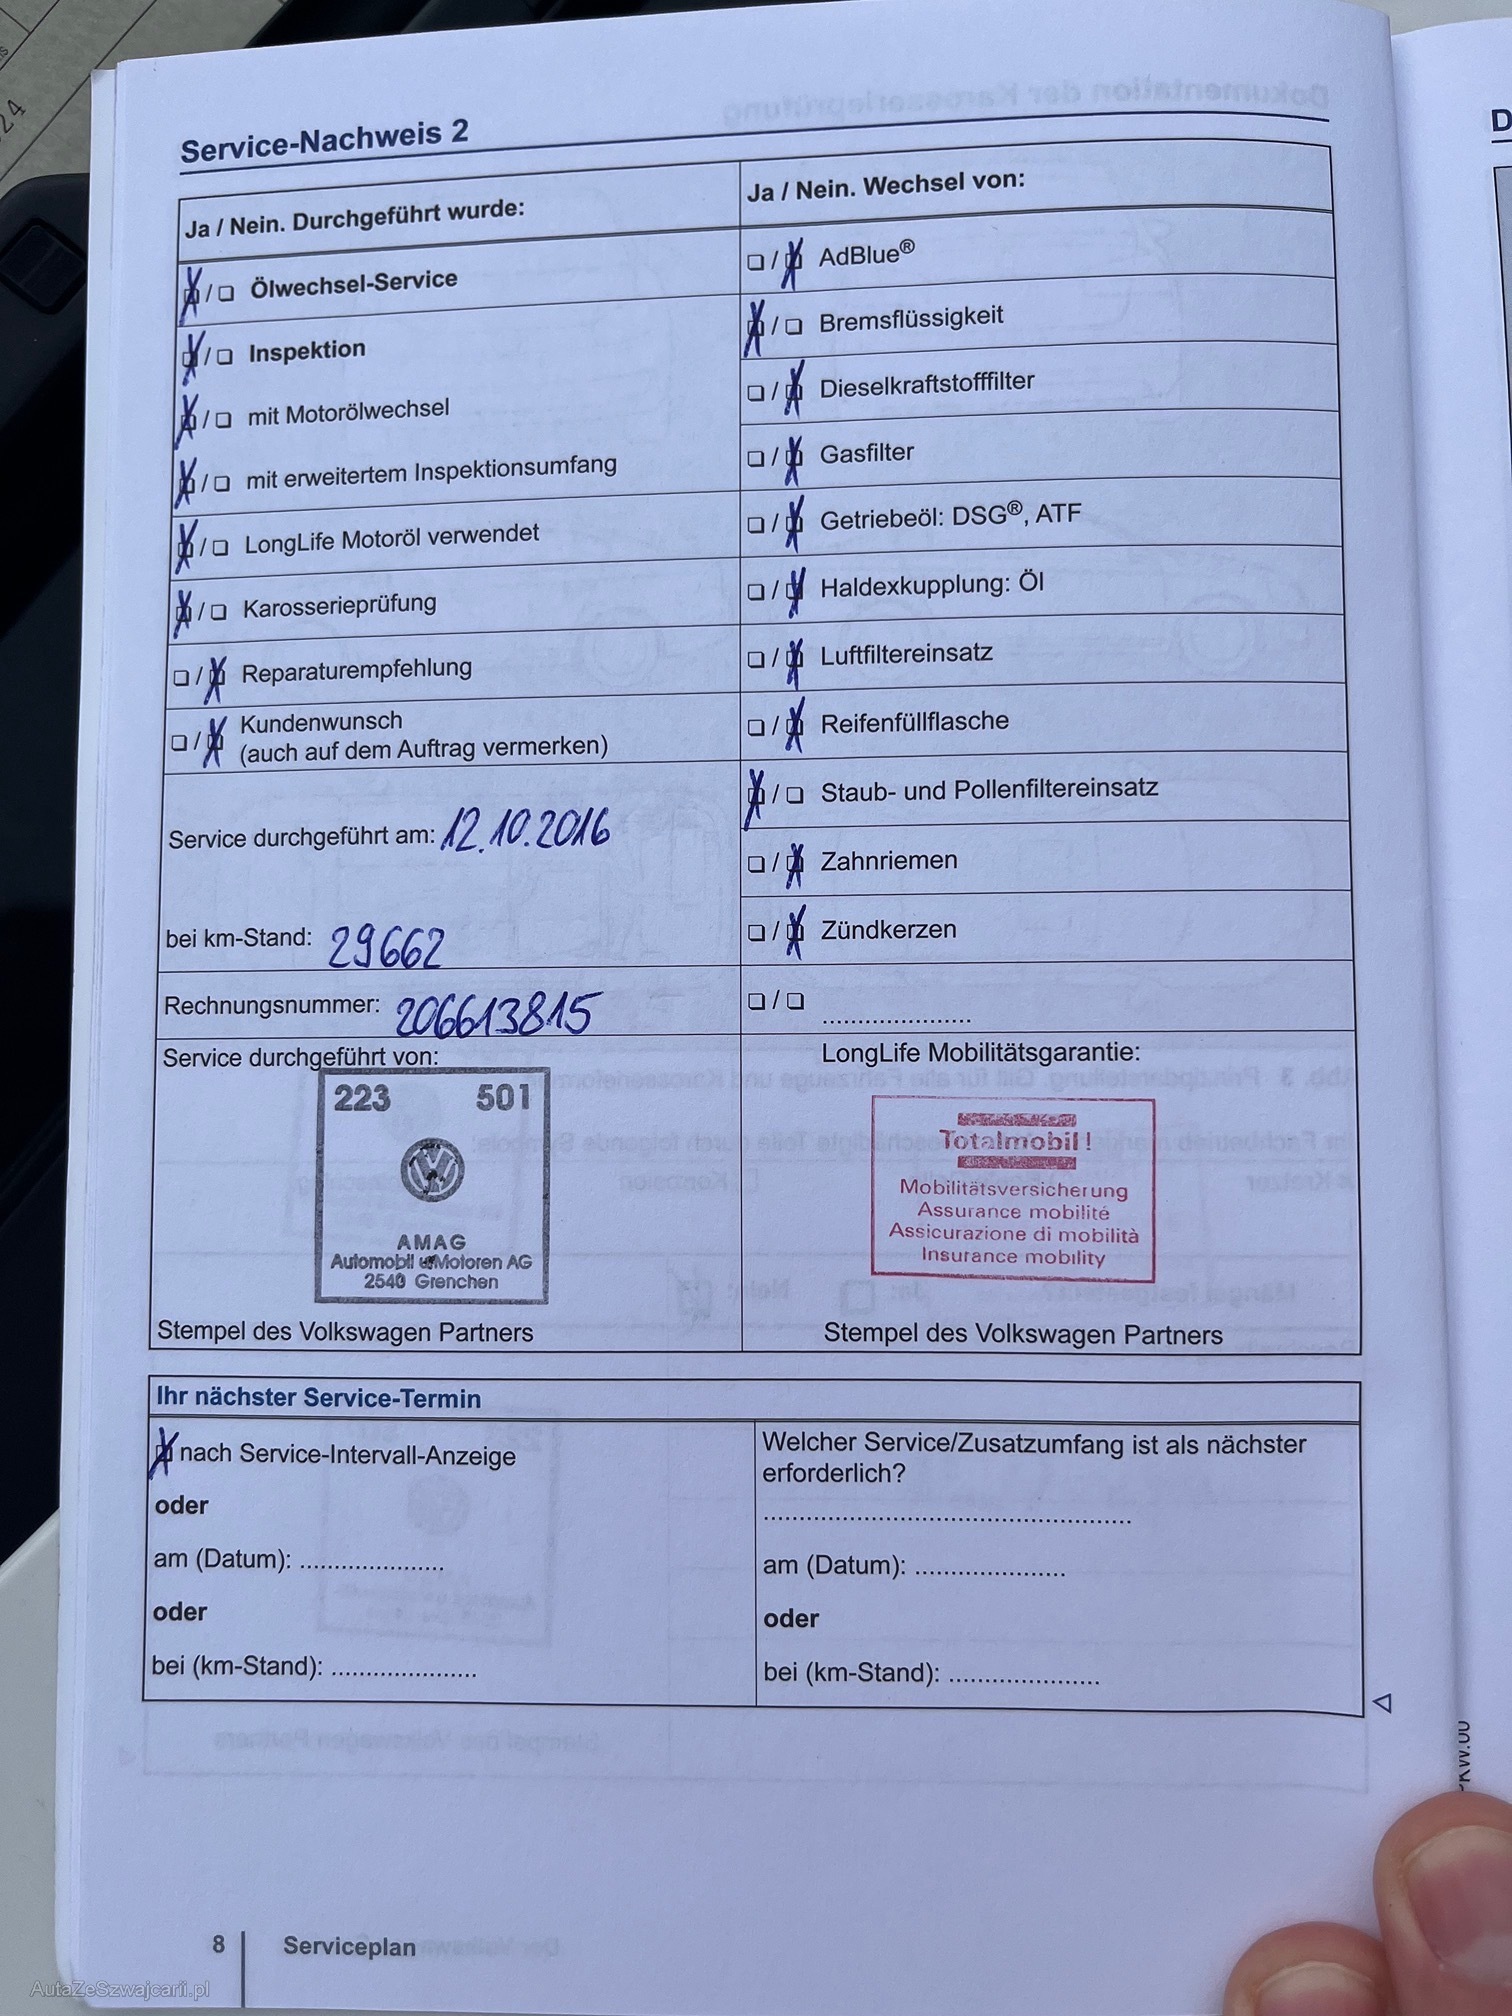 Service-Nachweis 2
Ja / Nein. Durchgeführt wurde:
☒/☐ Ölwechsel-Service
☒/☐ Inspektion
☒/☐ mit Motorölwechsel
☒/☐ mit erweitertem Inspektionsumfang
☒/☐ LongLife Motoröl verwendet
☒/☐ Karosserieprüfung
☐/☒ Reparaturempfehlung
☐/☒ Kundenwunsch
(auch auf dem Auftrag vermerken)
Service durchgeführt am: 12.10.2016
bei km-Stand: 29662
Rechnungsnummer: 206613815
Ja / Nein. Wechsel von:
☐/☒ AdBlue®
☒/☐ Bremsflüssigkeit
☐/☒ Dieselkraftstofffilter
☐/☒ Gasfilter
☐/☒ Getriebeöl: DSG®, ATF
☐/☒ Haldexkupplung: Öl
☐/☒ Luftfiltereinsatz
☐/☒ Reifenfüllflasche
☒/☐ Staub- und Pollenfiltereinsatz
☐/☒ Zahnriemen
☐/☒ Zündkerzen
☐/☐ .....................
Service durchgeführt von:
223 501
AMAG
Automobil u. Motoren AG
2540 Grenchen
Stempel des Volkswagen Partners
LongLife Mobilitätsgarantie:
Totalmobil!
Mobilitätsversicherung
Assurance mobilité
Assicurazione di mobilità
Insurance mobility
Stempel des Volkswagen Partners
Ihr nächster Service-Termin
☒ nach Service-Intervall-Anzeige
oder
am (Datum): .....................
oder
bei (km-Stand): .....................
Welcher Service/Zusatzumfang ist als nächster
erforderlich?
.....................................................
am (Datum): .....................
oder
bei (km-Stand): .....................
8 Serviceplan
AutaZeSzwajcarii.pl